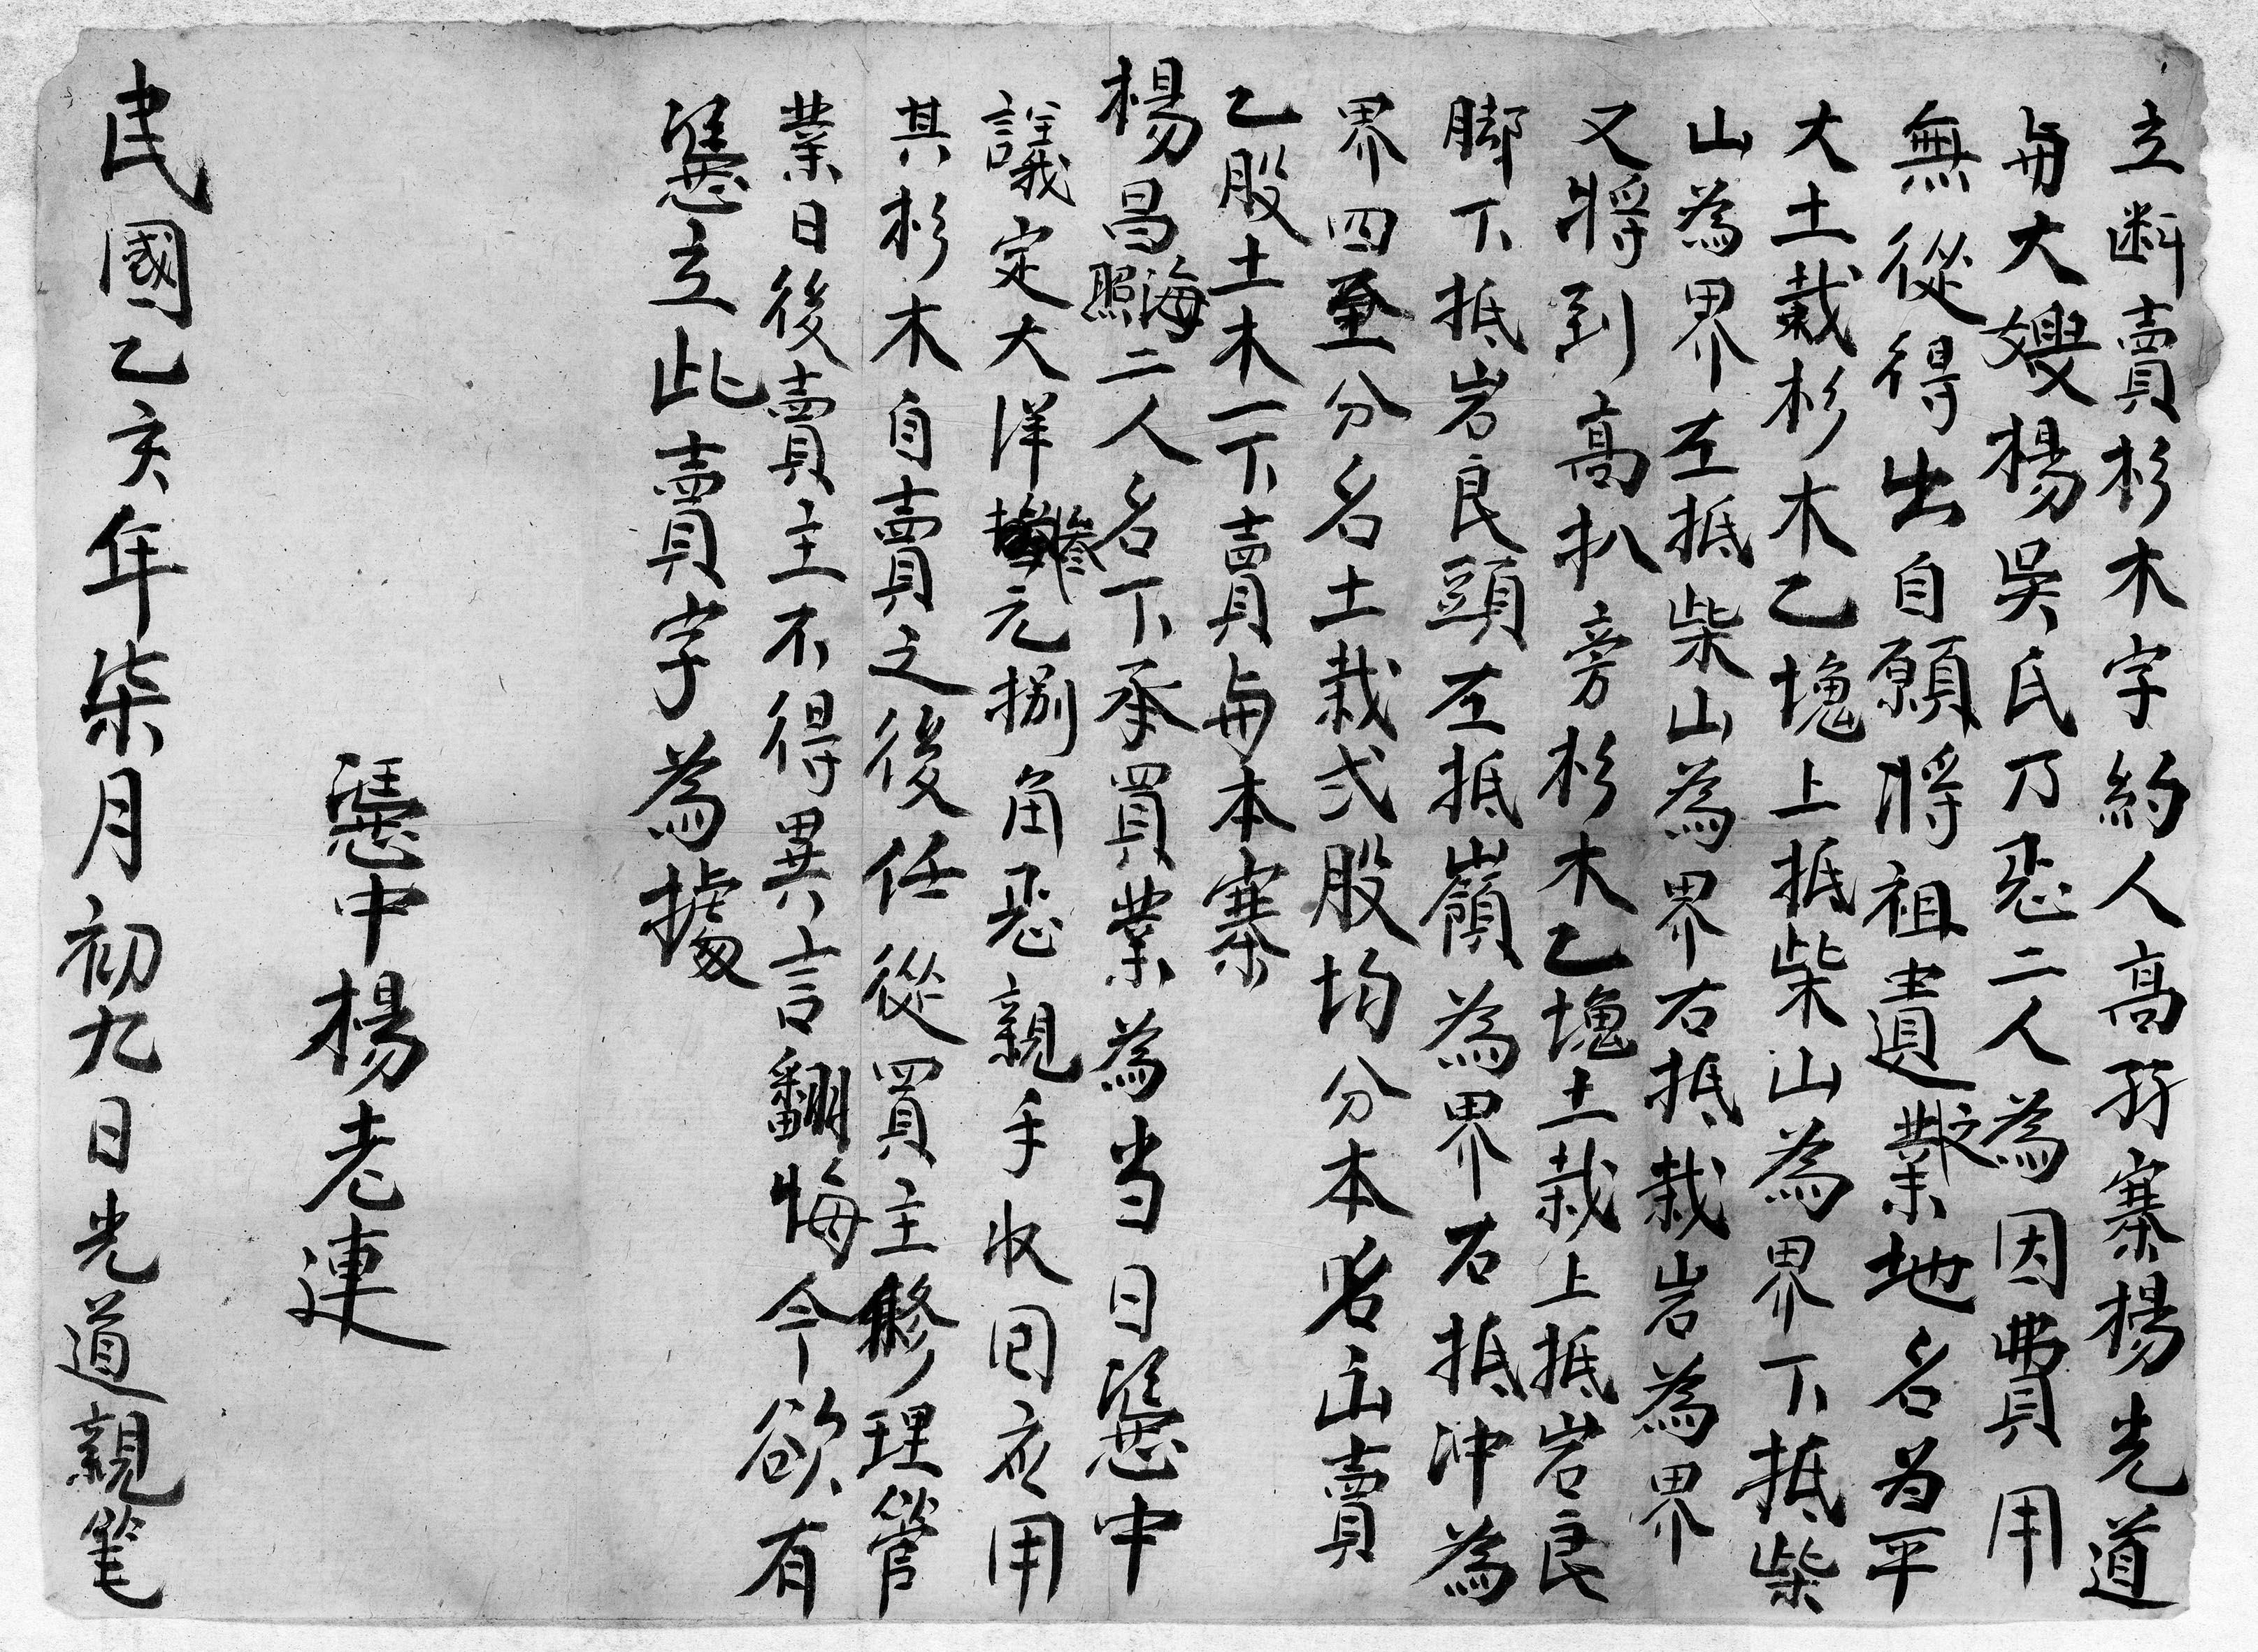 立斷賣杉木字約人高孖寨楊光道
與大嫂楊吳氏乃惡二人為因費用
無從得出自願將祖遺之業地名為平
大土栽杉木乙塊上抵柴山為界下抵柴
山為界左抵柴山為界右抵栽岩為界
又將到高扒旁杉木乙塊土栽上抵岩良
脚下抵岩良頭左抵嶺為界右抵冲為
界四至分名土栽弍股均分本名山賣
乙股土木一下賣與本寨
楊昌海照二人名下承買業為当日憑中
議定大洋叁元捌角惡親手收回衣用
其杉木自賣之後任從買主修理管
業日後賣主不得異言翻悔今欲有
憑立此賣字為據
憑中楊老連
民國乙亥年柒月初九日光道親笔